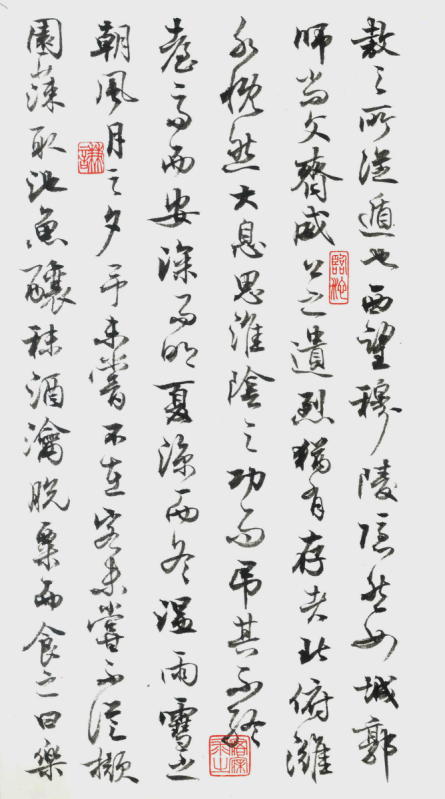 敖之所從遁也西望穆陵隱然如城郭
師尚父齊威公之遺烈猶有存者北俯濰
水慨然大息思淮陰之功而弔其不終
臺高而安深而明夏涼而冬溫雨雪之
朝風月之夕予未嘗不在客未嘗不從擷
園蔬取池魚釀秫酒瀹脫粟而食之曰樂